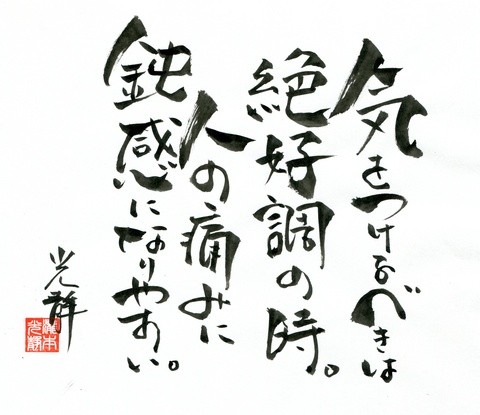 気をつけるべきは
絶好調の時。
人の痛みに
鈍感になりやすい。
光静